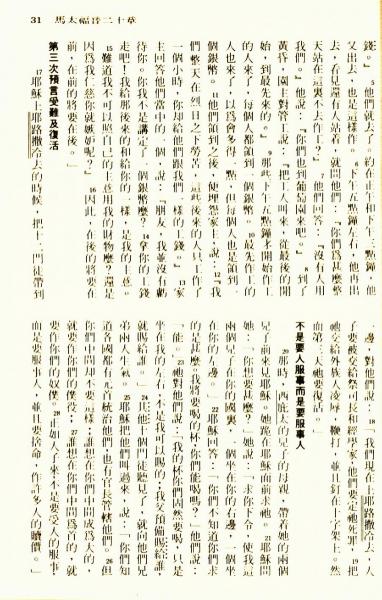 31　馬太福音二十章
錢。』5他們就去了。約在正午和下午三點鐘，他
又出去，也是這樣作。6下午五點鐘左右，他再出
去，看見還有人站着，就問他們：『你們爲甚麼整
天站在這裏不去作工？』7他們回答：『沒有人用
我們。』他說：『你們也到葡萄園來吧。』8到了
黃昏，園主對管工說：『把工人叫來，從最後的開
始，到最先來的。』9那些下午五點鐘才開始作工
的人來了，每個人都領到一個銀幣。10最先作工的
人也來了，以爲會多得一點，但每個人也是領到一
個銀幣。11他們領到之後，便埋怨家主，說：12『我
們整天在烈日之下勞苦，這些後來的人只工作了
一個小時，你却給他們跟我們一樣的工錢。』13家
主回答他們當中的一個，說：『朋友，我並沒有虧
待你。你我不是講定了一個銀幣麼？14拿你的工錢
走吧！我給那後來的和給你的一樣，是我的主意。
15難道我不可以照自己的主意用我的財物麼？還是
因爲我仁慈你就嫉妒呢？』16因此，在後的將要在
前，在前的將要在後。」
第三次預言受難及復活
17耶穌上耶路撒冷去的時候，把十二門徒帶到
一邊，對他們說：18「我們現在上耶路撒冷去，人
子要被交給祭司長和經學家，他們要定祂死罪，19把
祂交給外族人凌辱、鞭打，並且釘在十字架上。然
而第三天祂要復活。」
不是要人服事而是要服事人
20那時，西庇太的兒子的母親，帶着她的兩個
兒子前來見耶穌。她跪在耶穌面前求祂。21耶穌問
她：「你想要甚麼？」她說：「求你下令，使我這
兩個兒子在你的國裏，一個坐在你的右邊，一個坐
在你的左邊。」22耶穌回答：「你們不知道你們求
的是甚麼。我將要喝的杯你們能喝嗎？」他們說：
「能。」23祂對他們說：「我的杯你們固然要喝，只是
坐在我的左右，不是我可以賜的；我父預備賜給誰，
就賜給誰。」24其他十個門徒聽見了，就向他們兄
弟兩人生氣。25耶穌把他們叫過來，說：「你們知
道各國都有元首統治他們，也有官長管轄他們。26但
你們中間却不要這樣；誰想在你們中間成爲大的，
就要作你們的僕役；27誰想在你們中間爲首的，就
要作你們的奴僕。28正如人子來，不是要受人的服事，
而是要服事人，並且要捨命，作許多人的贖價。」